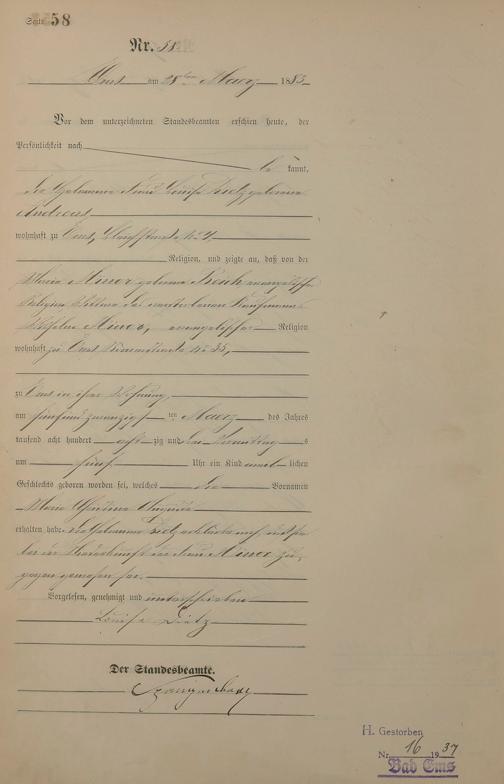 Seite 58
Nr. 58.
Ems am 28ten Maerz 1883.
Vor dem unterzeichneten Standesbeamten erschien heute, der
Persönlichkeit nach
be kannt,
die Hebamme Frau Louise Dietz geborene
Andreas
wohnhaft zu Ems,
Religion, und zeigte an, daß von der
Maria Minor geborene evangelischer
Religion Wittwe des verstorbenen Kaufmanns
Wilhelm Minor, evangelischer Religion
wohnhaft zu Ems Römerstraße No 35,
zu Ems in ihrer Wohnung,
am fünfundzwanzigsten Maerz des Jahres
tausend acht hundert acht zig und drei s
um fünf Uhr ein Kind lichen
Geschlechts geboren worden sei, welches die Vornamen
Maria
erhalten habe. Die Hebamme Dietz erklärte noch, daß sie
bei der Niederkunft der Frau Minor zu-
gegen gewesen sei.
Vorgelesen, genehmigt und unterschrieben
Louise Dietz
Der Standesbeamte.
H. Gestorben
Nr. 16 1937
Bad Ems